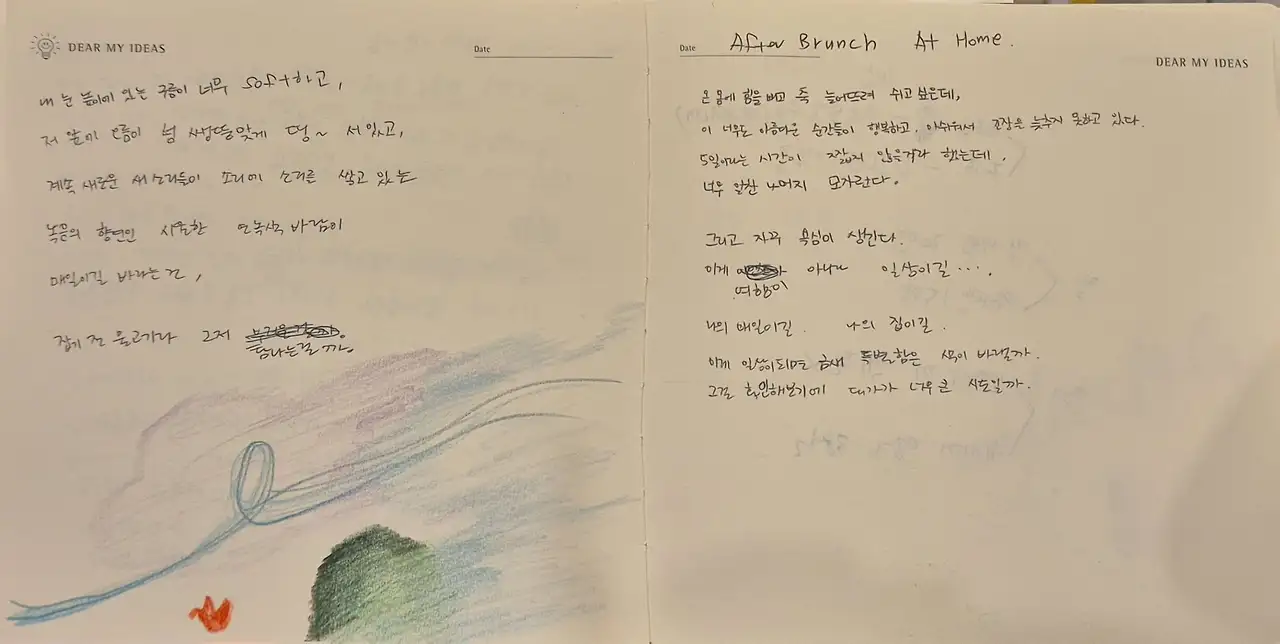 DEAR MY IDEAS
Date
내 눈 높이에 있는 구름이 너무 soft하고,
저 앞에 오름이 넘 쌩뚱맞게 떵~ 서있고,
계속 새로운 새소리들이 소리에 소리를 쌓고 있는
녹음의 향연인 시원한 연녹색 바람이
매일이길 바라는 건,
잡기 전 물고기라 그저
탐나는걸까.
Date After Brunch At Home.
DEAR MY IDEAS
온 몸에 힘을 빼고 축 늘어뜨려 쉬고싶은데,
이 너무도 아름다운 순간들이 행복하고, 아쉬워서 긴장을 늦추지 못하고 있다.
5일이라는 시간이 짧지 않을거라 했는데,
너무 알찬 나머지 모자란다.
그리고 자꾸 욕심이 생긴다.
이게 아니라 일상이길...,
여행이
나의 매일이길. 나의 집이길.
이게 일상이되면 금새 특별함은 색이 바랠까.
그걸 확인해보기에 대가가 너무 큰 시도일까.